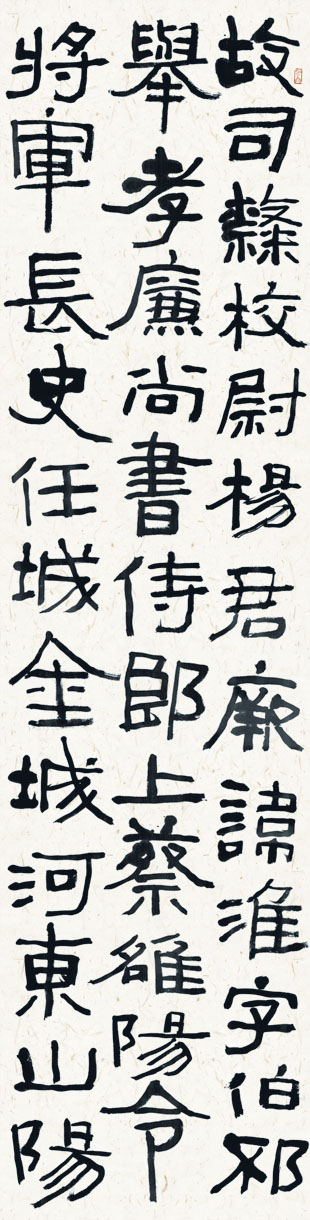 故司隸校尉楊君厥諱淮字伯邳
舉孝廉尚書侍郎上蔡雒陽令
將軍長史任城金城河東山陽